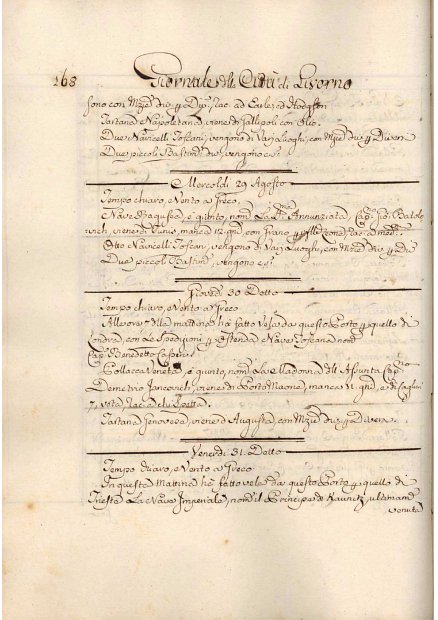 168 Giornale della Città di Livorno
sono con Mzie div. p Dip. rac. ad Euler ed Hodgson
Tartana Napoletana viene di Gallipoli con Olio.
Due Navicelli Toscani, vengono di Varj Luoghi, con Mzie div. p Diversi
Due piccoli Bastim. div. vengono c.s.
Mercoldì 29 Agosto
Tempo chiaro, e Vento a Greco.
Nave Ragusea, è giunta, nom. La SS. Annunziata, Cap. Gio: Batolo
vich, viene di Tunis, manca 12 gni, con Grano
Otto Navicelli Toscani, vengono di Varj Luoghi, con Mzie div. p Div.
Due piccoli Bastim. vengono c.s.
Giovedì 30 Detto
Tempo chiaro, e Vento a Greco
Alle ore 7 della mattina hà fatto Vela da questo Porto p quello di
Londra, con Le Spedizioni p Ostenda Nave Toscana nom.
Cap. Benedetto Casperi
Pollacca Veneta, è giunta, nom. La Madonna dell' Assunta Cap.
Demetrio Jancovich, viene di Porto Maone, manca 11 gni, e di Cagliari
7, vota, rac. a chi Spetta.
Tartana Genovese, viene d'Augusta, con Mzie div. p Diversi.
Venerdì 31. Detto
Tempo chiaro, e Vento a Greco
In questa Mattina hà fatto vela da questo Porto p quello di
Trieste La Nave Imperiale, nom. il Principe di Kaunitz, ultimam.
venuta